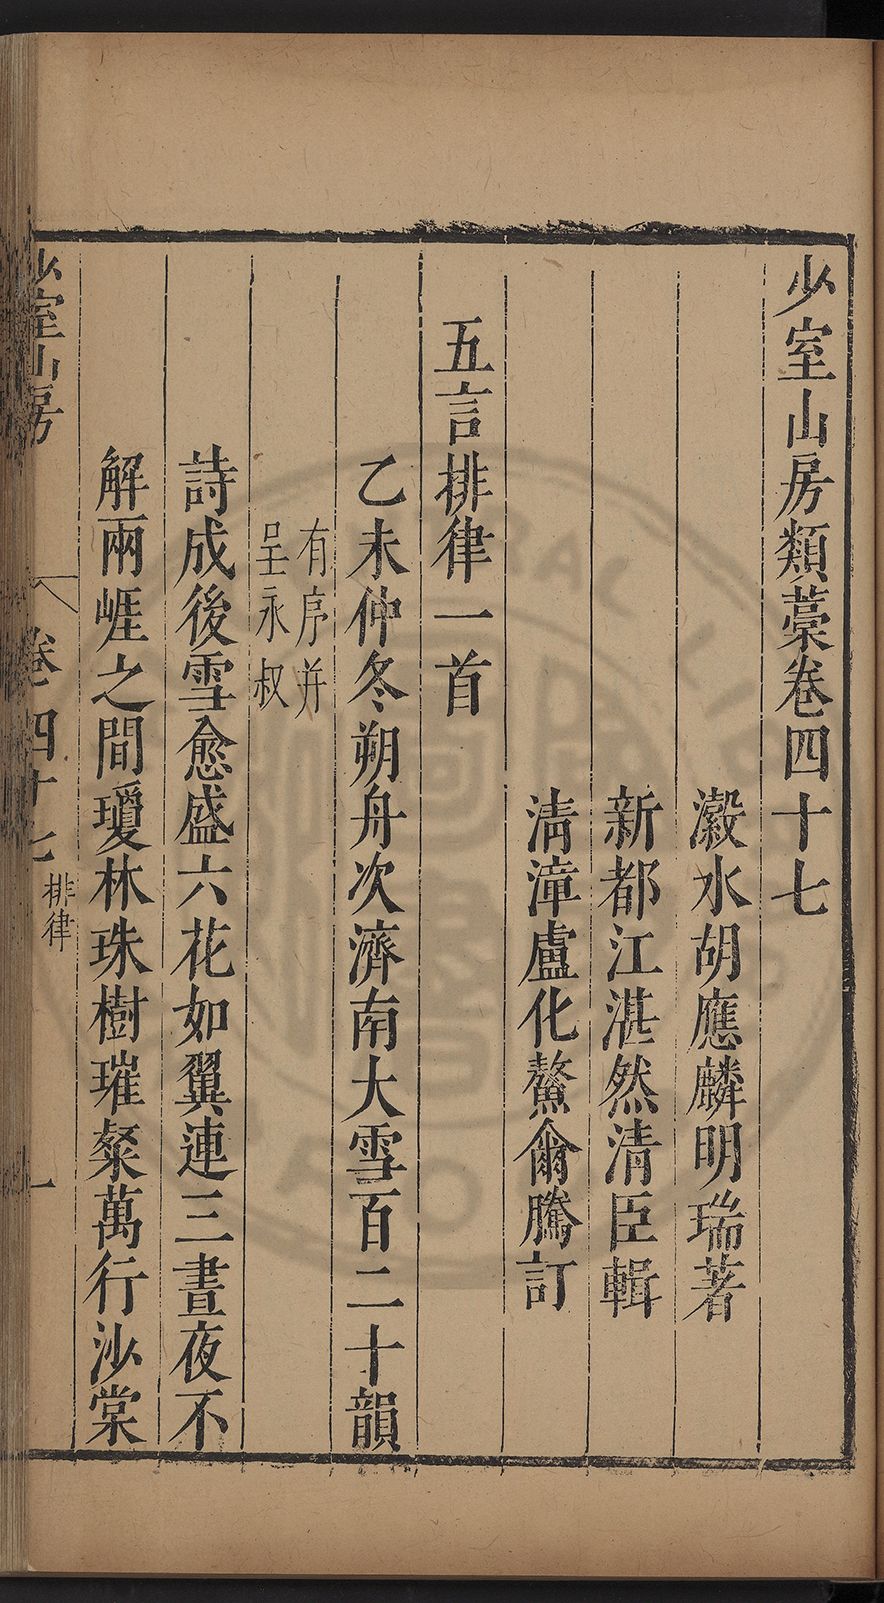 少室山房類藁卷四十七
瀫水胡應麟明瑞著
新都江湛然清臣輯
清漳盧化鰲爾騰訂
五言排律一首
乙未仲冬朔舟次濟南大雪百二十韻
有序并
呈永叔
詩成後雪愈盛六花如翼連三晝夜不
解兩崕之間瓊林珠樹璀粲萬行沙棠
少室山房
卷四十七
排律
一